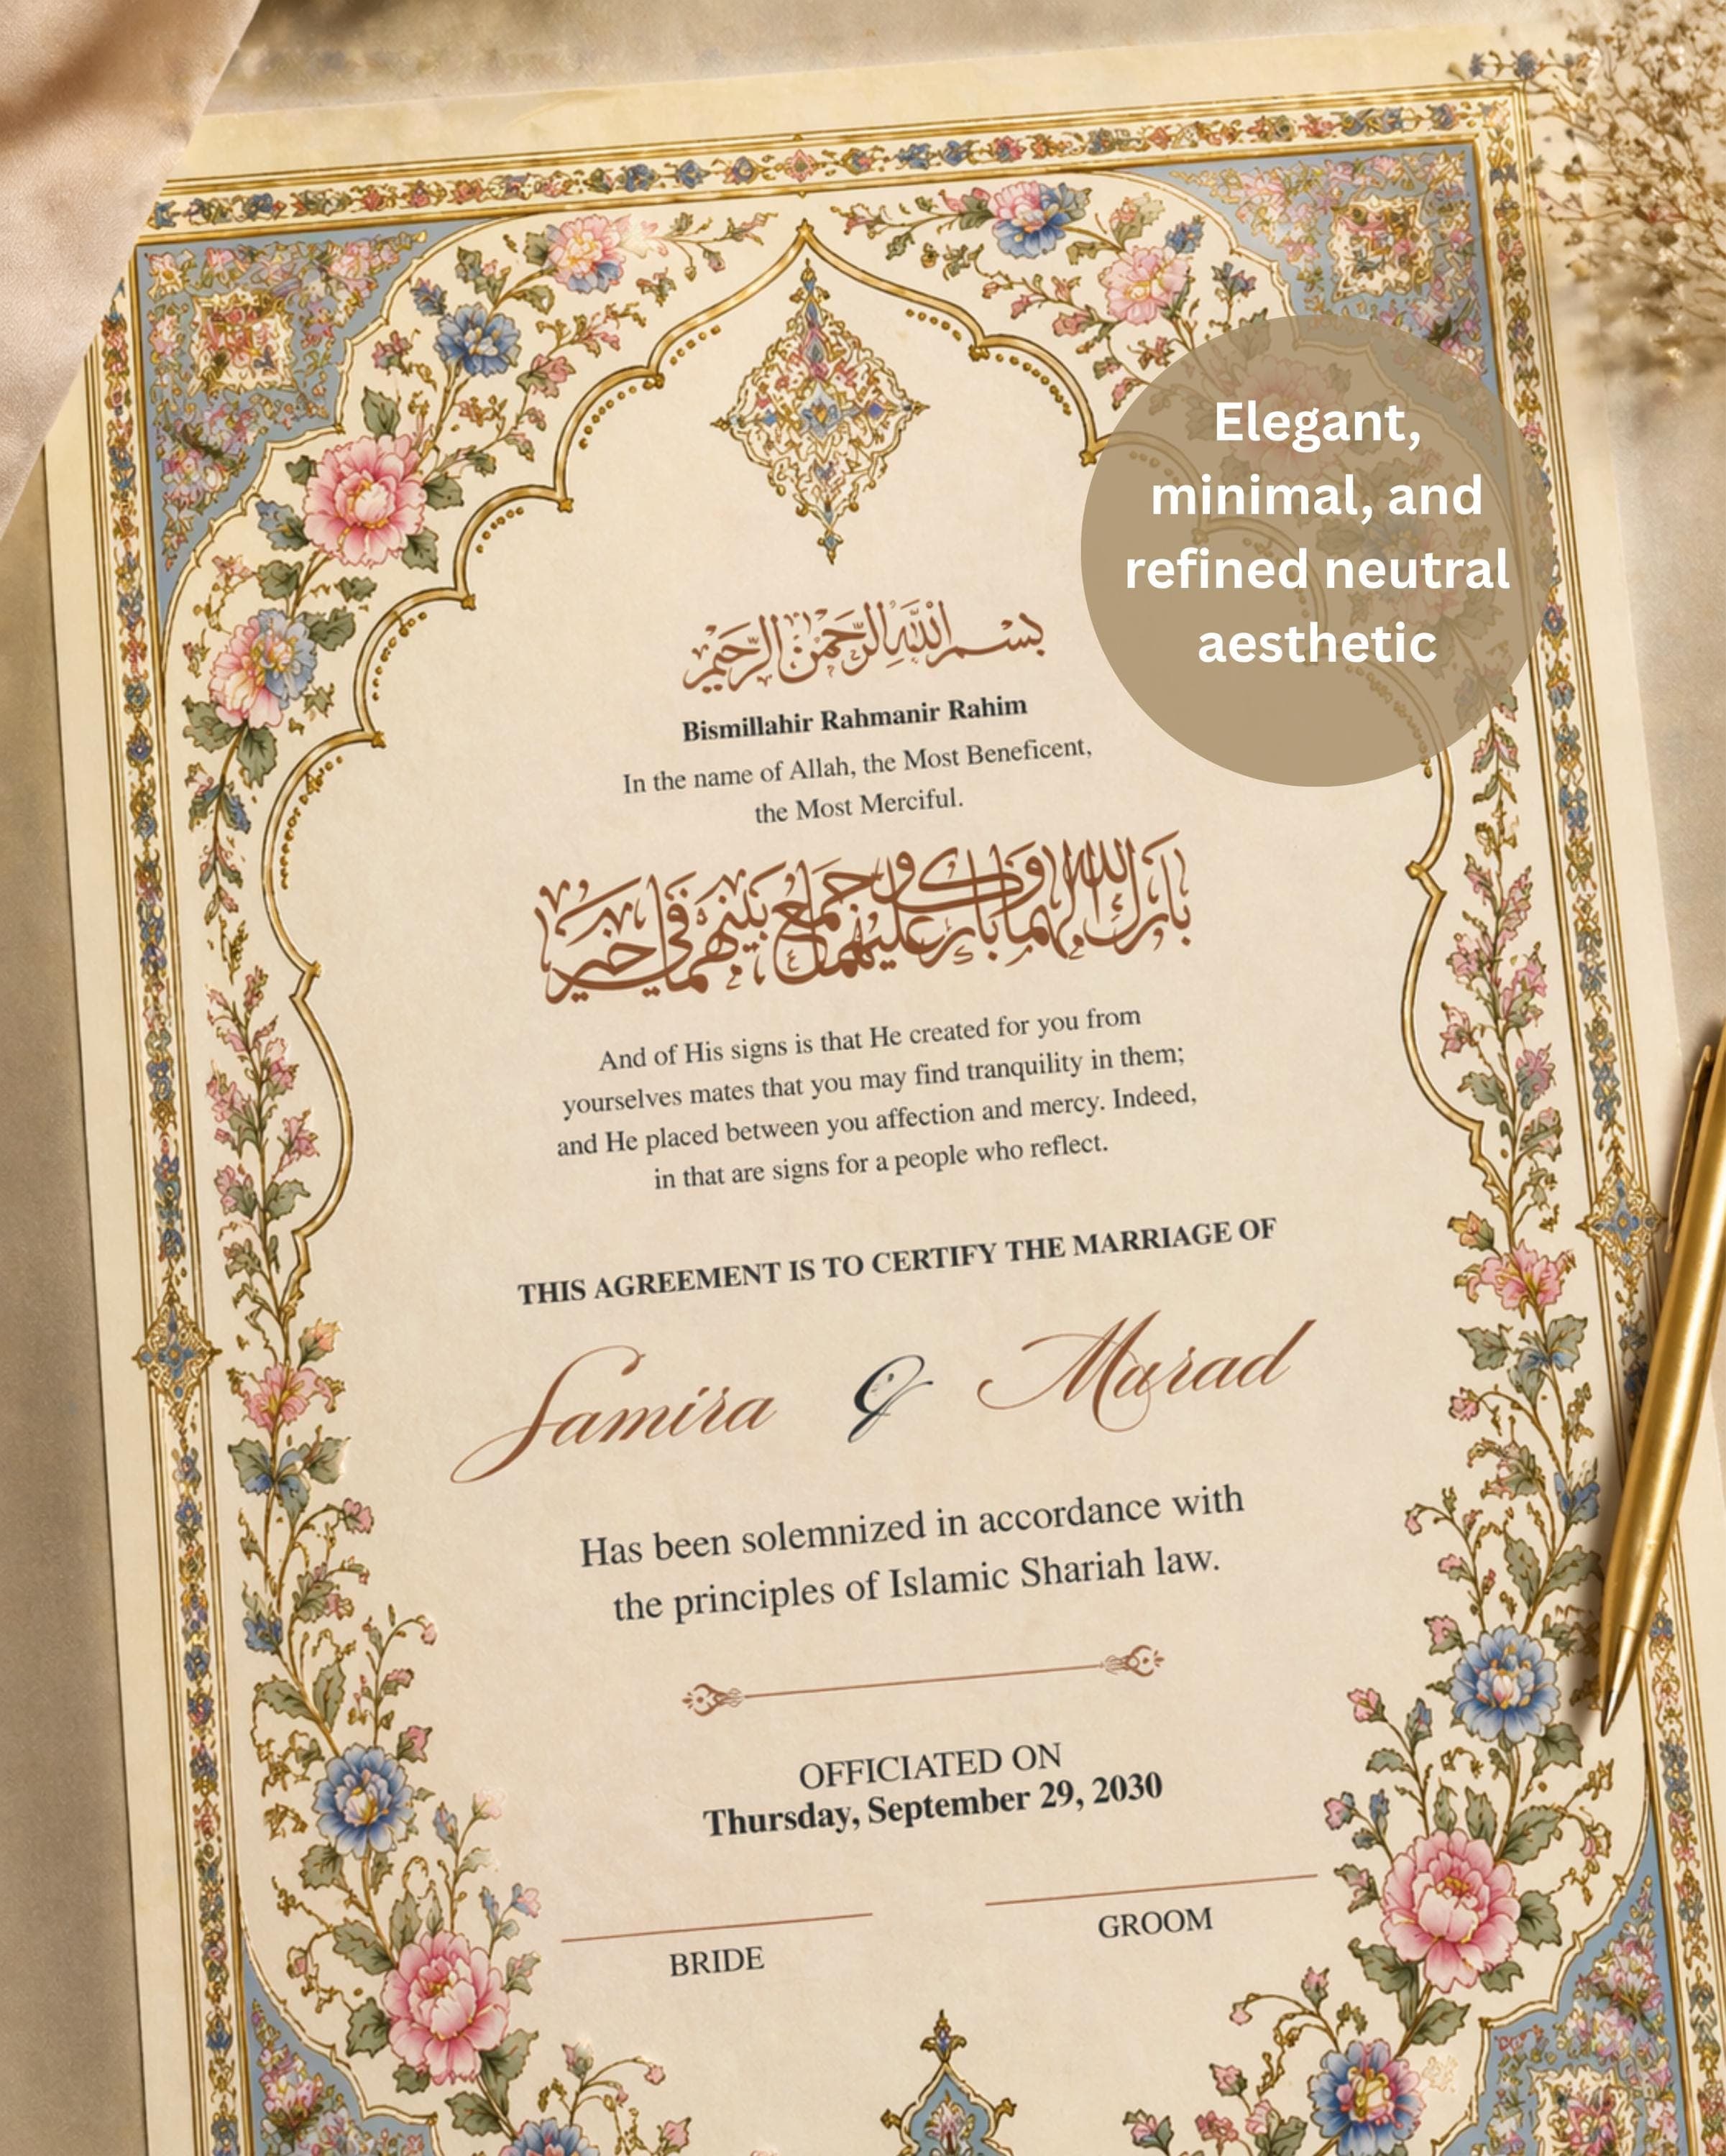 Elegant,
minimal, and
refined neutral
aesthetic
بسم الله الرحمن الرحيم
Bismillahir Rahmanir Rahim
In the name of Allah, the Most Beneficent,
the Most Merciful.
بارك الله لهما وبارك عليهما وجمع بينهما في خير
And of His signs is that He created for you from
yourselves mates that you may find tranquility in them;
and He placed between you affection and mercy. Indeed,
in that are signs for a people who reflect.
THIS AGREEMENT IS TO CERTIFY THE MARRIAGE OF
Samira & Murad
Has been solemnized in accordance with
the principles of Islamic Shariah law.
OFFICIATED ON
Thursday, September 29, 2030
BRIDE GROOM